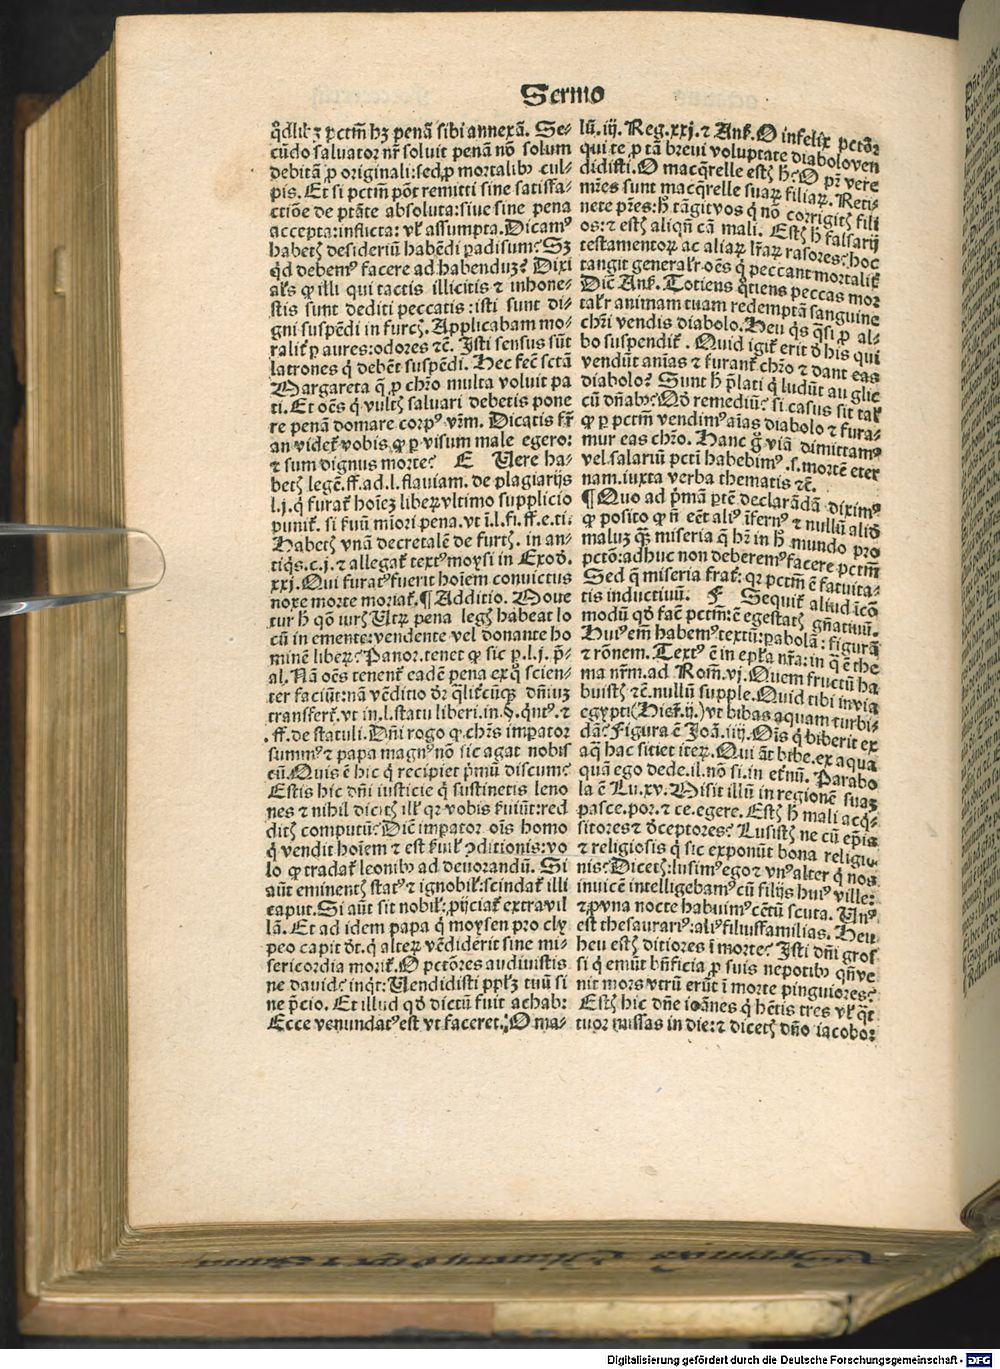 Sermo
q̄dlibꝫ pctm̄ hꝫ penā sibi annexā. Se⸗
cūdo saluator nr̄ soluit penā nō solum
debitā ꝓ originali: sed ꝓ mortalibꝰ cul⸗
pis. Et si pctm̄ pōt remitti sine satisfa⸗
ctiōe de ptāte absoluta: siue sine pena
accepta: inflicta: vl̓ assumpta. Dicamꝰ
habetꝭ desideriū habēdi padisum? Sꝫ
qd̓ debemꝰ facere ad habenduꝫ? Dixi
al̓s ꝙ illi qui tactis illicitis ⁊ inhone⸗
stis sunt dediti peccatis: isti sunt di⸗
gni suspēdi in furcꝭ. Applicabam mo⸗
ralit̓ p aures: odores ⁊c̄. Isti sensus sūt
latrones q̓ debēt suspēdi. Hec fec̄ sctā
Margareta q̄ ꝓ chr̄o multa voluit pa
ti. Et oēs q̓ vultꝭ saluari debetis pone
re penā domare corpꝰ vr̄m. Dicatis fr̄
an videt̓ vobis ꝙ ꝑ visum male egero:
⁊ sum dignus morte? E Uere ha⸗
betꝭ legē. ff. ad. l. flauiam. de plagiarijs
l. j. q̓ furat̓ hoīeꝫ liberꝫ vltimo supplicio
punit̓. si ẜuū miori pena. vt ī. l. fi. ff. e. ti.
Habetꝭ vnā decretalē de furtꝭ. in an⸗
tiq̄s. c. j. ⁊ allegat̓ textꝰ moysi in Exod̓.
xxj. Qui furatꝰ fuerit hoīem conuictus
noxe morte moriat̓. ¶ Additio. Moue
tur h̄ qōm̄ iurꝭ Utꝝ pena legꝭ habeat lo
cū in emente: vendente vel donante ho
minē liberꝫ? Panor. tenet ꝙ sic p. l. j. p̄⸗
al. Nā oēs tenent̓ eadē pena ex q̓ scien⸗
ter faciūt: nā vēditio dr̄ q̄lit̓cūqꝫ dn̄iuꝫ
transfert̓. vt in. l. statu liberi. in. §. qntꝰ. ⁊
. ff. de statuli. Dn̄i rogo ꝙ chr̄s impator
summꝰ ⁊ papa magnꝰ nō sic agat nobis
cū. Quis ē hic q̓ recipiet pmū discum?
Estis hic dn̄i iusticie q̓ sustinetis leno
nes ⁊ nihil dicitꝭ ill̓ qꝛ vobis ẜuiūt: red
ditꝭ computū? Dic̄ impator oīs homo
q̓ vendit hoīem ⁊ est ẜuil̓ ꝯditionis: vo
lo ꝙ tradat̓ leonibꝰ ad deuorandū. Si
aūt eminentꝭ statꝰ ⁊ ignobil̓: scindat̓ illi
caput. Si aūt sit nobil̓: ꝓijciat̓ extra vil
lā. Et ad idem papa q̓ moysen pro cly
peo capit dt̓. q̓ alterꝫ vēdiderit sine mi⸗
sericordia morit̓. O pctōres audiuistis
ne dauid? inqt: Uendidisti pplꝫ tuū si
ne p̄cio. Et illud qd̓ dictū fuit achab:
Ecce venundatꝰ est vt faceret. O ma⸗
lū. iij. Reg. xxj. ⁊ Ans̓. O infelix pctōr
qui te ꝓ tā breui voluptate diabolo ven
didisti. O macq̄relle estꝭ h̄? O pr̄ vere
mr̄es sunt macq̄relle suaꝝ filiaꝝ. Reti⸗
nete pr̄es: h̄ tāgit vos q̓ nō corrigitꝭ fili
os: ⁊ estꝭ aliqn̄ cā mali. Estꝭ h̄ falsarij
testamentoꝝ ac aliaꝝ lr̄aꝝ rasores? hoc
tangit general̓r oēs q̓ peccant mortalit̓
Dic̄ Ans̓. Totiens q̄tiens peccas mor
tal̓r animam tuam redemptā sanguine
chr̄i vendis diabolo. Heu q̓s q̄si ꝓ al⸗
bo suspendit̓. Quid igit̓ erit d̓ his qui
vendūt aīas ⁊ furant̓ chr̄o ⁊ dant eas
diabolo? Sunt h̄ p̄lati q̓ ludūt au glic
cū dn̄abꝰ? Qd̓ remediū? si casus sit tal̓
ꝙ ꝑ pctm̄ vendimꝰ aīas diabolo ⁊ fura⸗
mur eas chr̄o. Hanc g̊ viā dimittamꝰ
vel salariū pcti habebimꝰ. s. mortē eter
nam. iuxta verba thematis ⁊c̄.
¶ Quo ad p̄mā ptē declarādā diximꝰ
ꝙ posito ꝙ n̄ eēt aliꝰ īfernꝰ ⁊ nullū aliō
maluꝫ qꝫ miseria q̄ hꝫ in h̄ mundo pro
pctō: adhuc non deberemꝰ facere pctm̄
Sed q̄ miseria frat̓: qꝛ pctm̄ ē fatuita⸗
tis inductiuū. F Sequit̓ aliud īcō
modū qd̓ fac̄ pctm̄: ē egestatꝭ gn̄atiuū.
Huiꝰ em̄ habemꝰ textū: pabolā: figurā
⁊ rōnem. Textꝰ ē in epl̓a nr̄a: in q̄ ē the
ma nr̄m. ad Rom̄. vj. Quem fructū ha
buistꝭ ⁊c̄. nullū supple. Quid tibi in via
egypti (Hier̓. ij.) vt bibas aquam turbi⸗
dā? Figura ē Joā. iiij. Oīs q̓ biberit ex
aq̄ hac sitiet iteꝝ. Qui āt bibe. ex aqua
quā ego dede. il. nō si. in et̓nū. Parabo
la ē Lu. xv. Misit illū in regionē suaꝫ
pasce. por. ⁊ ce. egere. Estꝭ h̄ mali acq̓⸗
sitores ⁊ d̓ceptores? Lusistꝭ ne cū ep̄is
⁊ religiosis q̓ sic exponūt bona religio⸗
nis? Dicetꝭ: lusimꝰ ego ⁊ vnꝰ alter q̓ nos
inuicē intelligebamꝰ cū filijs huiꝰ ville:
⁊ ꝓ vna nocte habuimꝰ cētū scuta. Unꝰ
est thesaurariꝰ: aliꝰ filiusfamilias. Heu
heu estꝭ ditiores ī morte? Isti dn̄i gros̓
si q̓ emūt bn̄ficia ꝓ suis nepotibꝰ qn̄ ve
nit mors vtrū erūt ī morte pinguiores?
Estꝭ hic dn̄e ioānes q̓ hētis tres vl̓ q̓t
tuor missas in die: ⁊ dicetꝭ dn̄o iacobo:
Digitalisierung gefördert durch die Deutsche Forschungsgemeinschaft - DFG